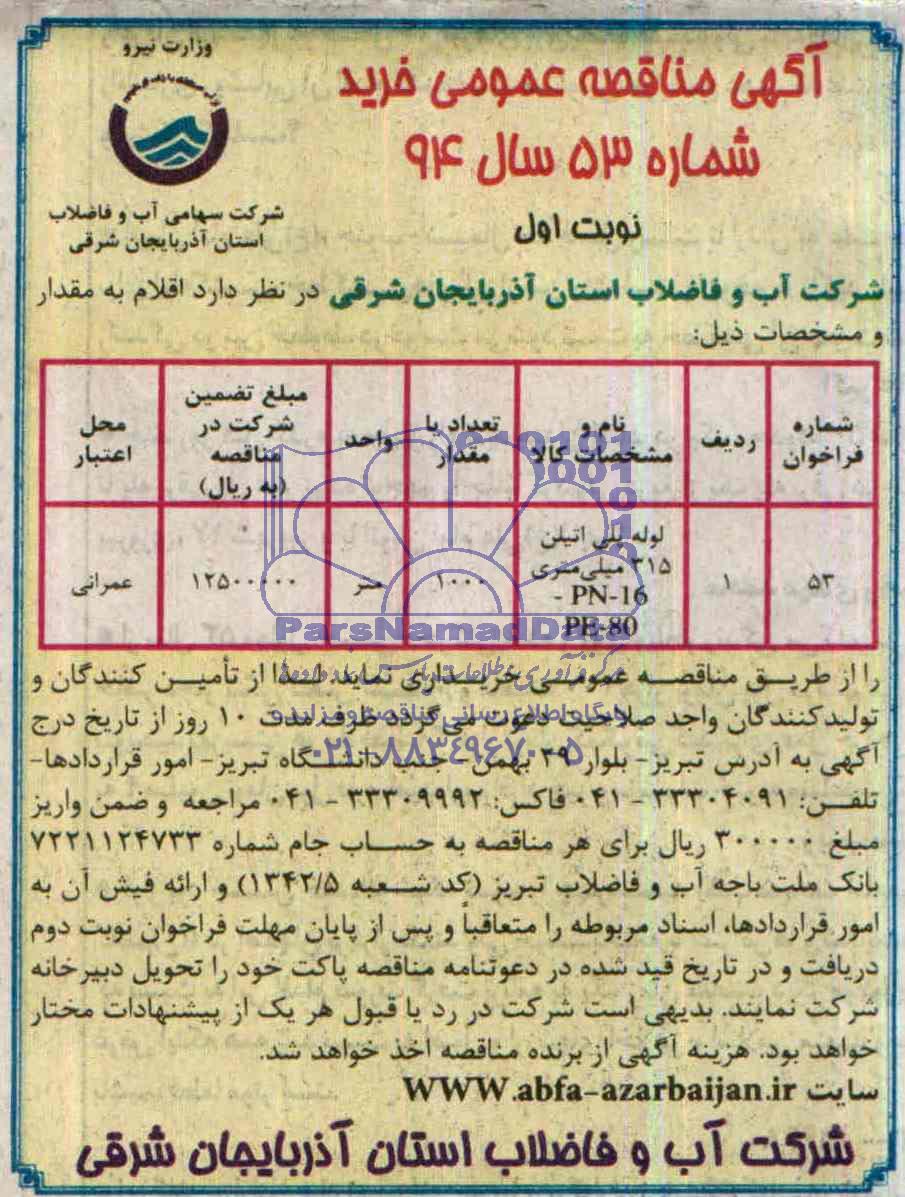 وزارت نیرو
شرکت سهامی آب و فاضلاب
استان آذربایجان شرقی
آگهی مناقصه عمومی خرید
شماره ۵۳ سال ۹۴
نوبت اول
شرکت آب و فاضلاب استان آذربایجان شرقی در نظر دارد اقلام به مقدار
و مشخصات ذیل:
شماره فراخوان | ردیف | نام و مشخصات کالا | تعداد یا مقدار | واحد | مبلغ تضمین شرکت در مناقصه (به ریال) | محل اعتبار
۵۳ | ۱ | لوله پلی اتیلن ۳۱۵ میلی‌متری PN-16 - PE-80 | ۱۰۰۰ | متر | ۱۲۵۰۰۰۰۰ | عمرانی
ParsNamadData
را از طریق مناقصه عمومی خریداری نماید. لذا از تأمین کنندگان و
تولیدکنندگان واجد صلاحیت دعوت می‌گردد ظرف مدت ۱۰ روز از تاریخ درج
پایگاه اطلاع رسانی مناقصه و مزایده
آگهی به آدرس تبریز- بلوار ۲۹ بهمن- جنب دانشگاه تبریز- امور قراردادها-
۰۲۱-۸۸۳۴۹۶۷۰-۵
تلفن: ۳۳۳۰۴۰۹۱ - ۰۴۱ فاکس: ۳۳۳۰۹۹۹۲ - ۰۴۱ مراجعه و ضمن واریز
مبلغ ۳۰۰۰۰۰ ریال برای هر مناقصه به حساب جام شماره ۷۲۲۱۱۲۴۷۳۳
بانک ملت باجه آب و فاضلاب تبریز (کد شعبه ۱۳۴۲/۵) و ارائه فیش آن به
امور قراردادها، اسناد مربوطه را متعاقباً و پس از پایان مهلت فراخوان نوبت دوم
دریافت و در تاریخ قید شده در دعوتنامه مناقصه پاکت خود را تحویل دبیرخانه
شرکت نمایند. بدیهی است شرکت در رد یا قبول هر یک از پیشنهادات مختار
خواهد بود. هزینه آگهی از برنده مناقصه اخذ خواهد شد.
سایت WWW.abfa-azarbaijan.ir
شرکت آب و فاضلاب استان آذربایجان شرقی